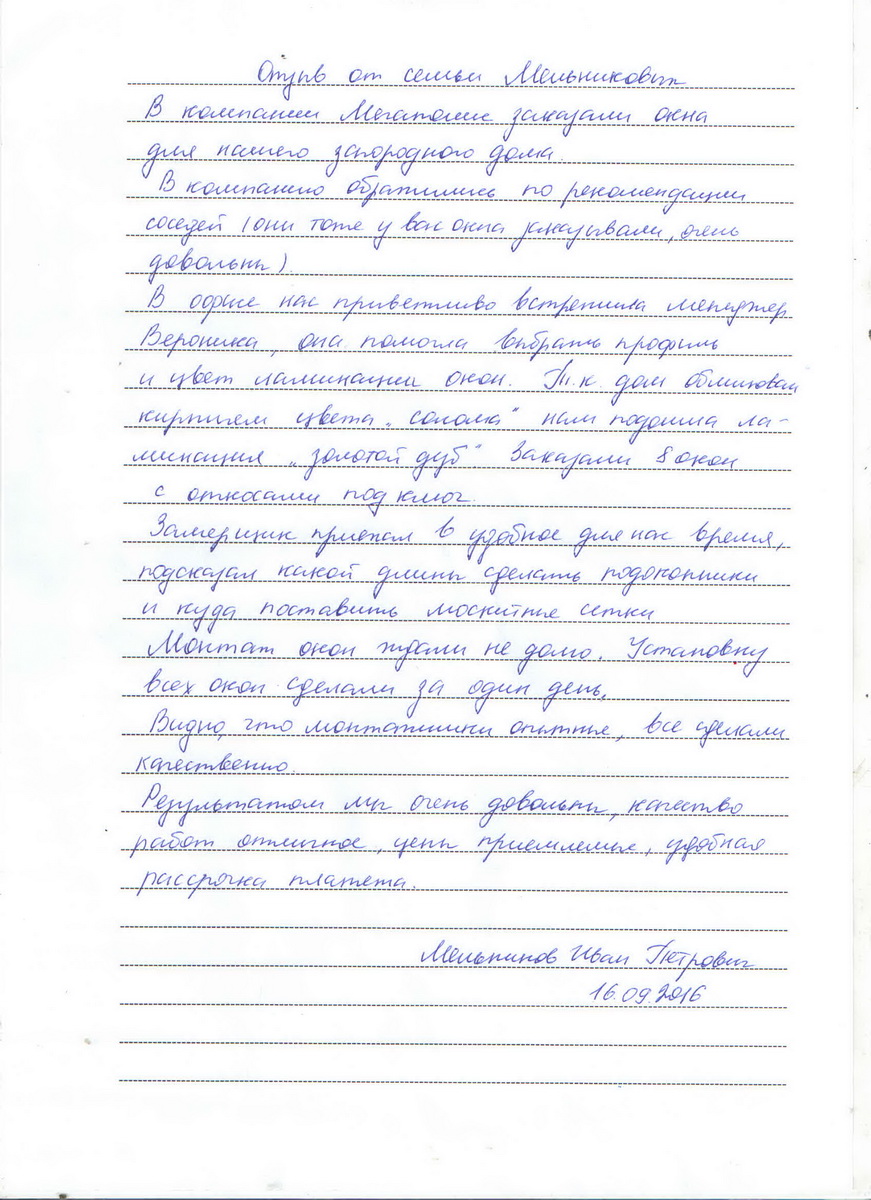 Отзыв от семьи Мельниковых
В компании Мегаполис заказали окна
для нашего загородного дома.
В компанию обратились по рекомендации
соседей (они тоже у вас окна заказывали, очень
довольны).
В офисе нас приветливо встретила менеджер
Вероника, она помогла выбрать профиль
и цвет ламинации окон. Т.к. дом облицован
кирпичем цвета „солома" нам подошла ла-
минация „золотой дуб" Заказали 8 окон
с откосами под ключ.
Замерщик приехал в удобное для нас время,
подсказал какой длины сделать подоконники
и куда поставить москитные сетки
Монтаж окон ждали не долго. Установку
всех окон сделали за один день.
Видно, что монтажники опытные, все сделали
качественно
Результатом мы очень довольны, качество
работ отличное, цены приемлемые, удобная
рассрочка платежа.
Мельников Иван Петрович
16.09.2016